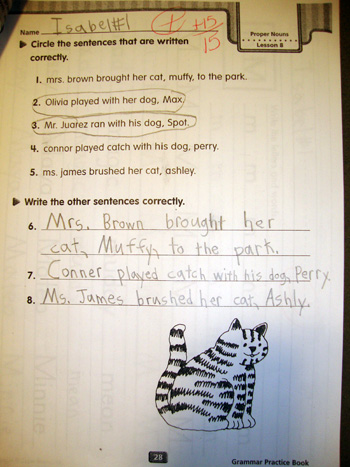 Name Isabel #1 + +15/15
Proper Nouns
Lesson 8
Circle the sentences that are written
correctly.
1. mrs. brown brought her cat, muffy, to the park.
2. Olivia played with her dog, Max.
3. Mr. Juarez ran with his dog, Spot.
4. connor played catch with his dog, perry.
5. ms. james brushed her cat, ashley.
Write the other sentences correctly.
6. Mrs. Brown brought her
cat, Muffy, to the park.
7. Conner played catch with his dog, Perry.
8. Ms. James brushed her cat, Ashly.
28
Grammar Practice Book